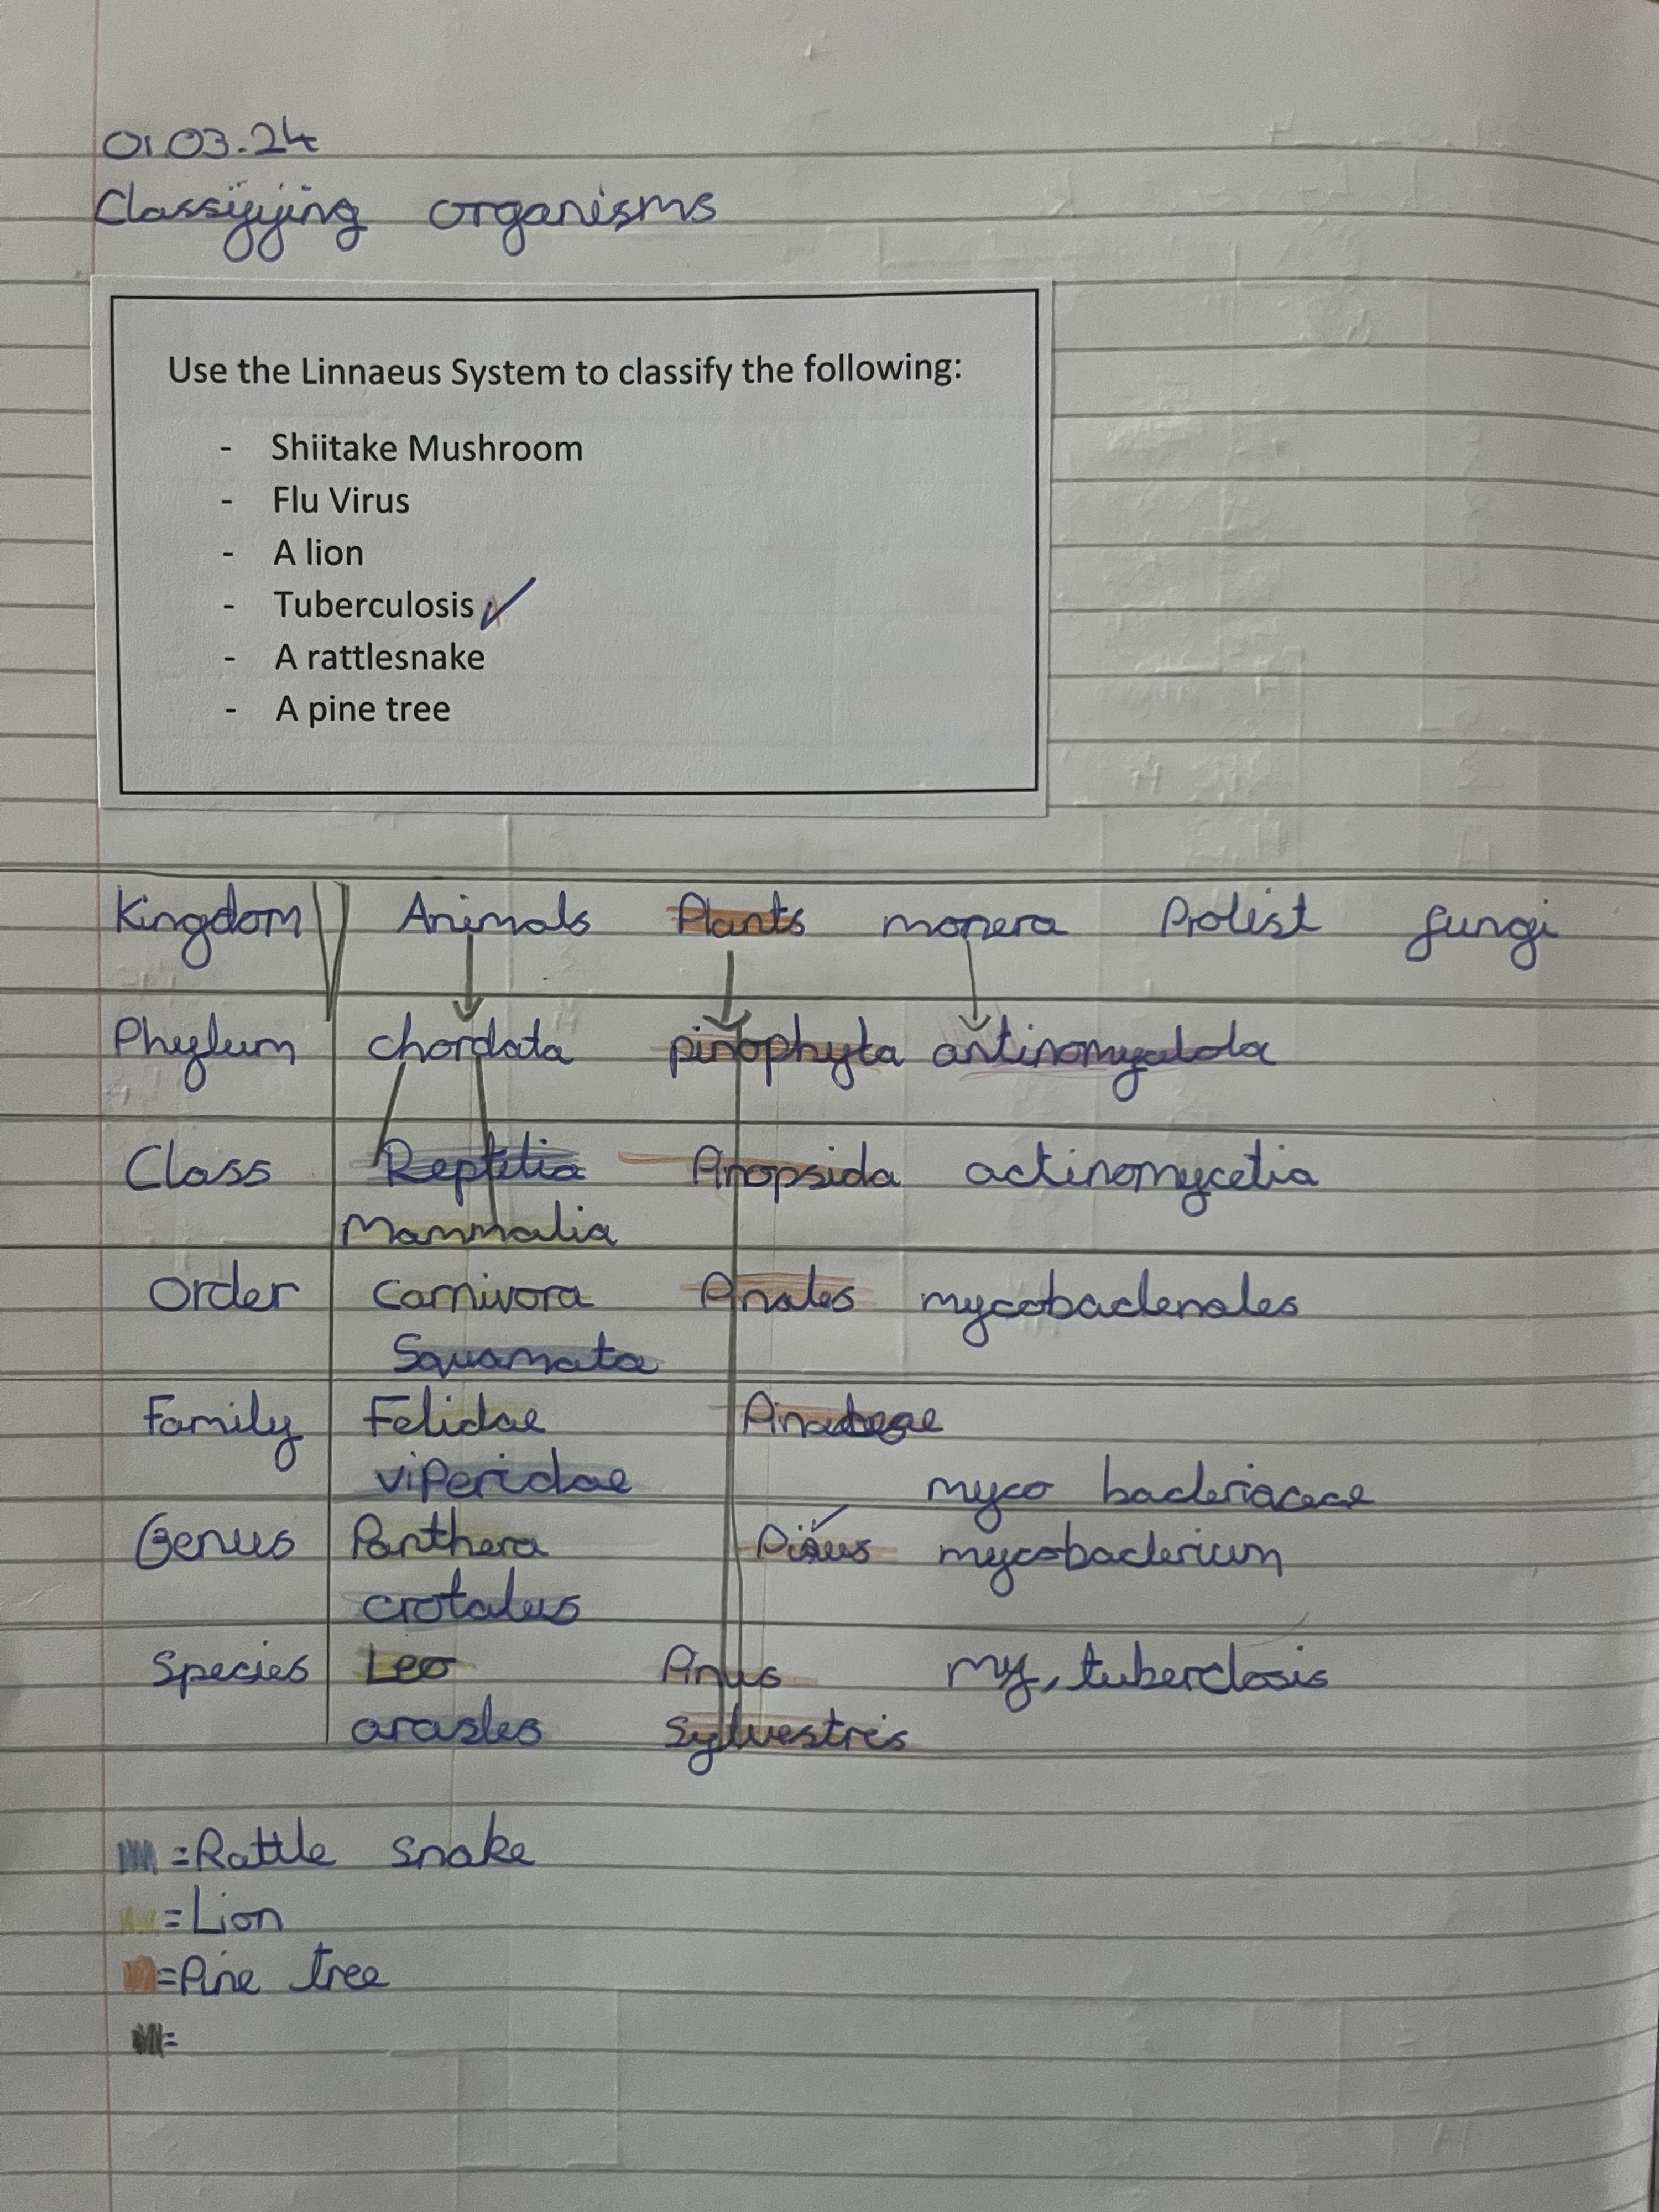 01.03.24
Classifying organisms
Use the Linnaeus System to classify the following:
- Shiitake Mushroom
- Flu Virus
- A lion
- Tuberculosis ✓
- A rattlesnake
- A pine tree
Kingdom Animals Plants monera Protist fungi
Phylum chordata pinophyta
Class Reptilia Pinopsida actinomycetia
Mammalia
Order Carnivora Pinales mycobacteriales
Squamata
Family Felidae
viperidae myco bacteriaceae
Genus Panthera Pinus mycobacterium
crotalus
Species Leo Pinus my, tuberclosis
Sylvestris
= Rattle snake
= Lion
= Pine tree
=